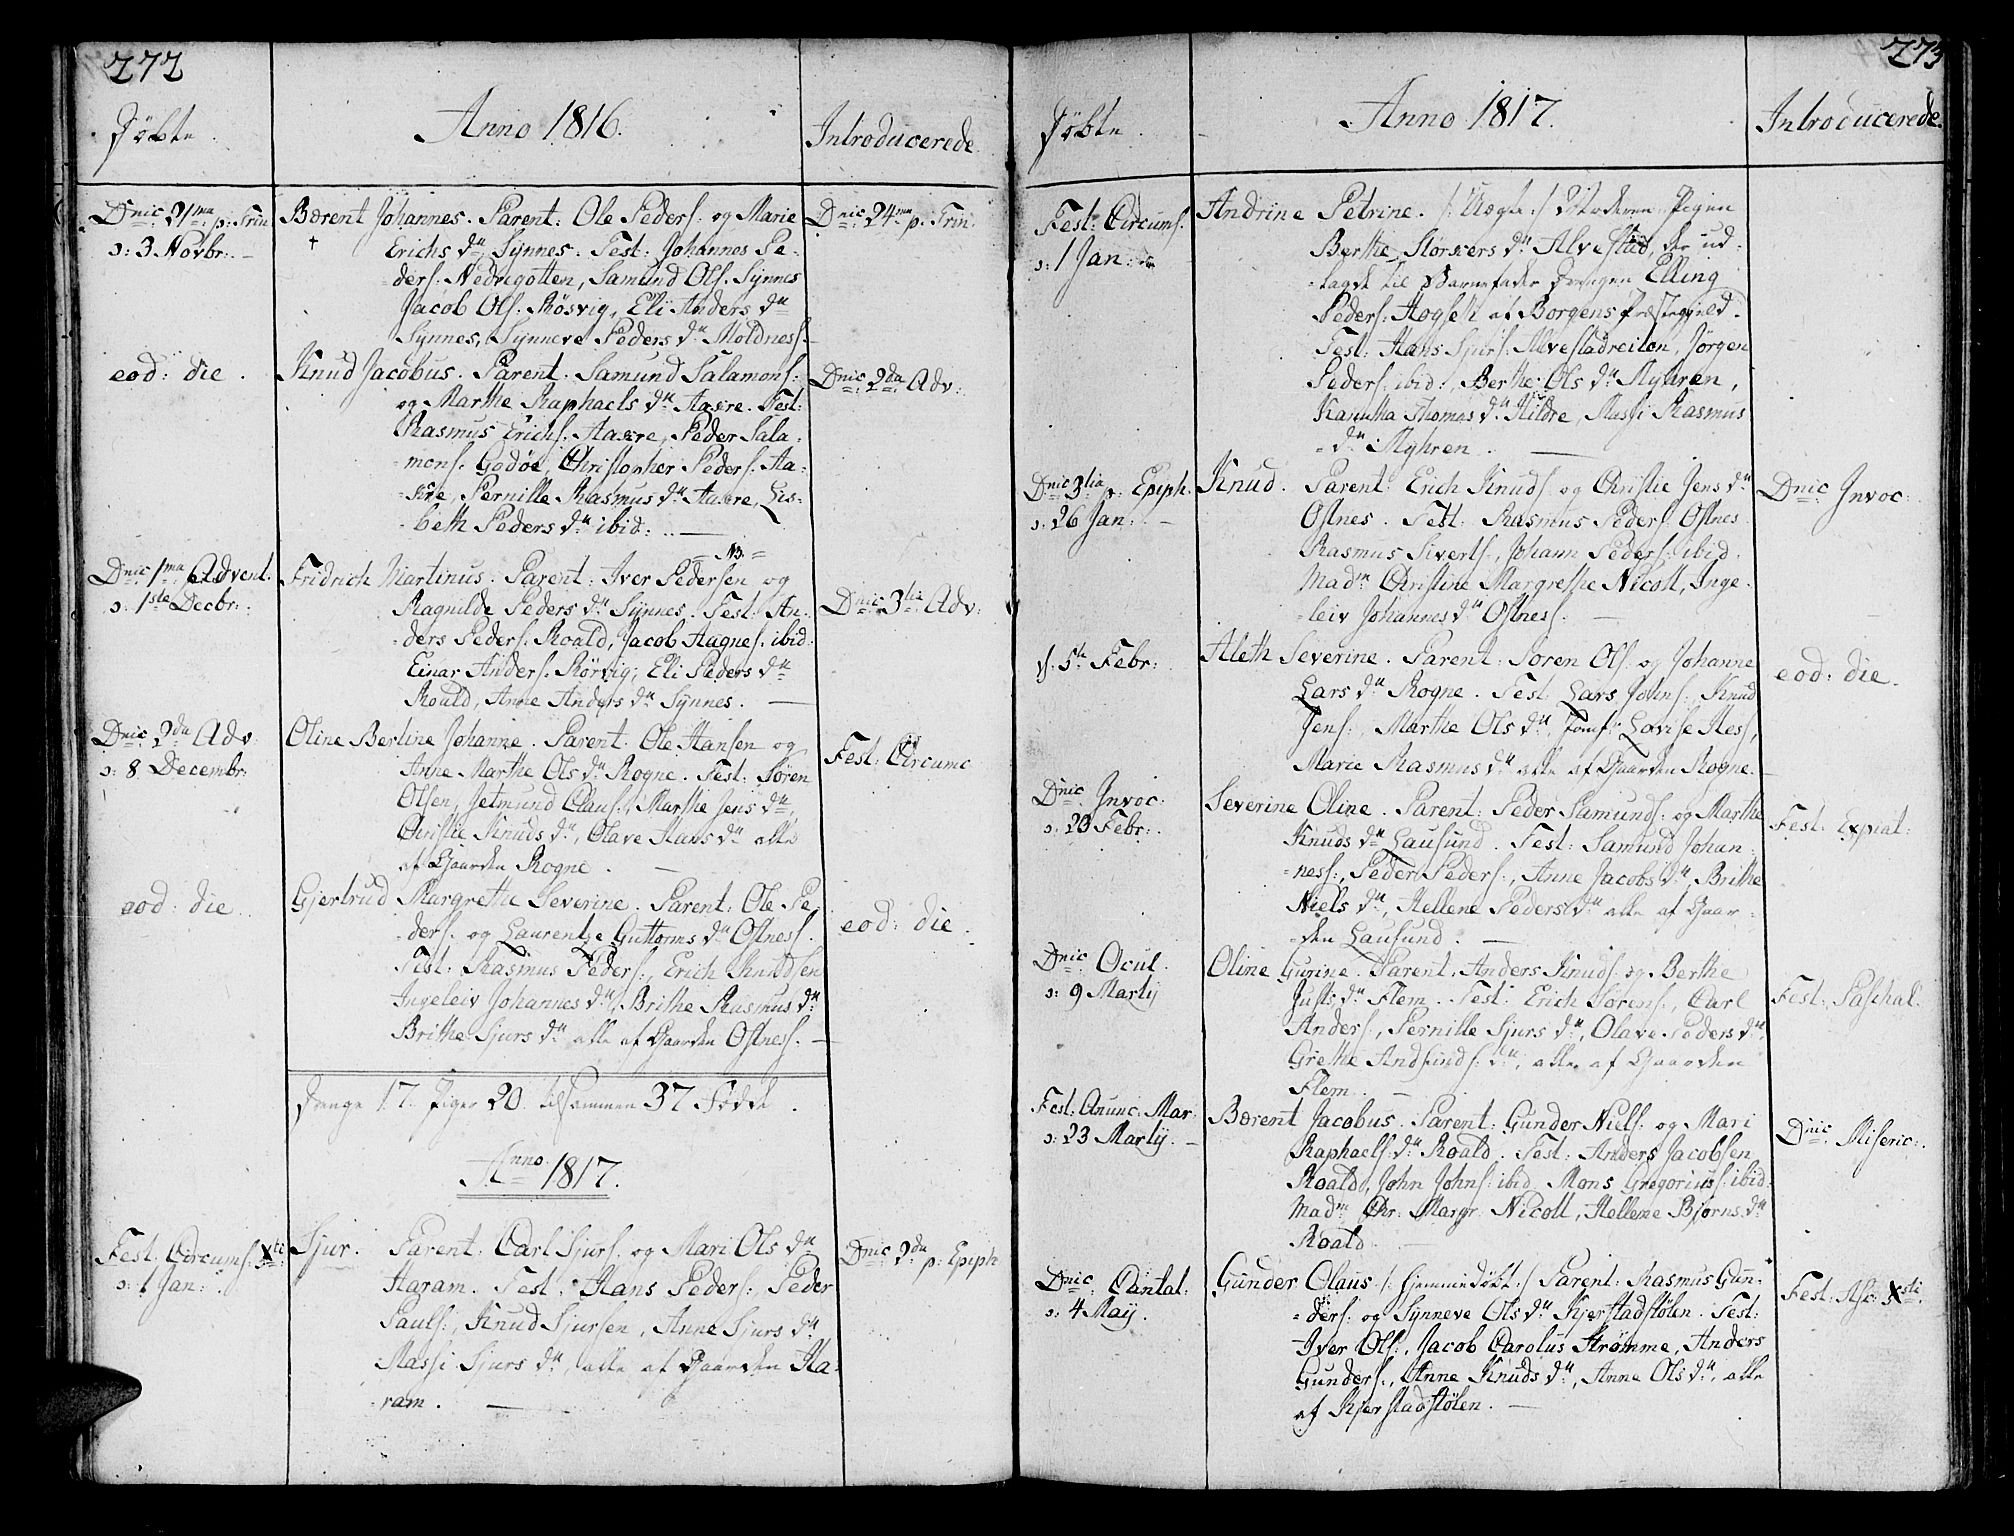 272
Døbte.
Anno 1816.
Introducerede
Dnic: 21ma p: Trin
ɔ: 3 Novbr:
Bærent Johannes. Parent: Ole Peders: og Marie
Erichs dtr Synnes. Test: Johannes Pe-
ders: Nedregotten, Samund Ols: Synnes
Jacob Ols: Røsvig, Eli Anders dtr
Synnes, Synneve Peders dtr Moldness.
Dnic: 24ma p: Trin:
eod: die.
Knud Jacobus. Parent. Samund Salamons:
og Marthe Raphaels dtr Aakre. Test:
Rasmus Erichs: Aakre, Peder Sala-
mons: Godøe, Christopher Peders: Aa-
kre, Pernille Rasmus dtr Aakre, Lis-
beth Peders dtr ibid:
Dnic: 2da Adv:
Dnic: 1ma Advent.
ɔ: 1ste Decbr:
= NB =
Fridrich Martinus. Parent: Iver Pedersen og
Ragnilde Peders dtr Synnes. Test: An-
ders Peders: Roald, Jacob Aagnes: ibid:
Einar Anders: Rørvig, Eli Peders dtr
Roald, Anne Anders dtr Synnes.
Dnic: 3tia Adv:
Dnic: 2da Adv:
ɔ: 8 Decembr:
Oline Bertine Johanne. Parent. Ole Hansen og
Anne Marthe Ols dtr Rogne. Test: Søren
Olsen, Jetmund Claus:, Marthe Jens dtr,
Christie Knuds dtr, Olave Hans dtr alle
af Gaarden Rogne.
Fest: Circumc
eod: die.
Gjertrud Margrethe Severine. Parent: Ole Pe-
ders: og Laurentze Guttorms dtr Ostness.
Test: Rasmus Peders:, Erich Knudsen
Ingeleiv Johannes dtr, Brithe Rasmus dtr
Brithe Sjurs dtr alle af Gaarden Ostness.
eod: die.
Drenge 17. Piger 20. tilsammen 37 Fødde.
Anno 1817.
Fest: Circums: Xti
ɔ: 1 Jan:
Sjur. Parent: Carl Sjurs: og Mari Ols dtr
Haram. Test: Hans Peders: Peder
Pauls:, Knud Sjursen, Anne Sjurs dtr
Massi Sjurs dtr, alle af Gaarden Ha-
ram.
Dnic: 2da p: Epiph
273
Døbte.
Anno 1817.
Introducerede.
Fest: Circums:
ɔ: 1 Jan:
Andrine Petrine. /: Uægte :/ Moderen Pigen
Berthe Størkers dtr Alvestad, der ud-
lagde til Barnefader Drengen Elling
Peders: Hogseth af Borgens Præstegield.
Test: Hans Sjurs: Alvestadreiten, Jørgen
Peders: ibid:, Berthe Ols dtr Myhren,
Karitha Thomas dtr Hildre, Massi Rasmus
dtr Myhren.
Dnic: 3tia p: Epiph.
ɔ: 26 Jan:
Knud. Parent: Erich Knuds: og Christie Jens dtr
Ostnes. Test: Rasmus Peders: Ostnes
Rasmus Siverts:, Johann Peders: ibid.
Madm Christine Margrethe Nicoll, Inge-
leiv Johannes dtr Ostness.
Dnic: Invoc:
d. 5te Febr:
Aleth Severine. Parent: Soren Ols: og Johanne
Lars dtr Rogne. Test: Lars Johns:, Knud
Jens:, Marthe Ols dtr, Jomf: Lovise Hess,
Marie Rasmus dtr alle af Gaarden Rogne.
eod: die.
Dnic: Invoc:
ɔ: 23 Febr:
Severine Oline. Parent: Peder Samunds: og Marthe
Knuds dtr Lausund. Test: Samund Johan-
ness:, Peder Peders:, Anne Jacobs dtr, Brithe
Niels dtr, Hellene Peders dtr alle af Gaar-
den Lausund.
Fest: Expiat:
Dnic: Ocul.
ɔ: 9 Martij
Oline Gurine. Parent: Anders Knuds: og Berthe
Justs dtr Flem. Test: Erich Sørens:, Carl
Anders:, Pernille Sjurs dtr, Olave Peders dtr,
Grethe Andfinds: dtr, alle af Gaarden
Flem.
Fest: Paschal.
Fest: Anunc: Mar:
ɔ: 23 Martij.
Bærent Jacobus. Parent: Gunder Niels: og Mari
Raphaels: dtr Roald. Test: Anders Jacobsen
Roald, John Johns: ibid, Mons Gregoriuss: ibid
Madm Chr: Margr: Nicoll, Hellene Bjørns dtr
Roald
Dnic: Miseric:
Dnic: Cantat:
ɔ: 4 Maij.
Gunder Olaus /: Hjemmedøbt :/ Parent: Rasmus Gun-
ders: og Synneve Ols dtr Kjerstadstølen. Test:
Iver Ols:, Jacob Carolus Strømme, Anders
Gunders:, Anne Knuds dtr, Anne Ols dtr, alle
af Kjerstadstølen.
Fest: Asc: Xsti.